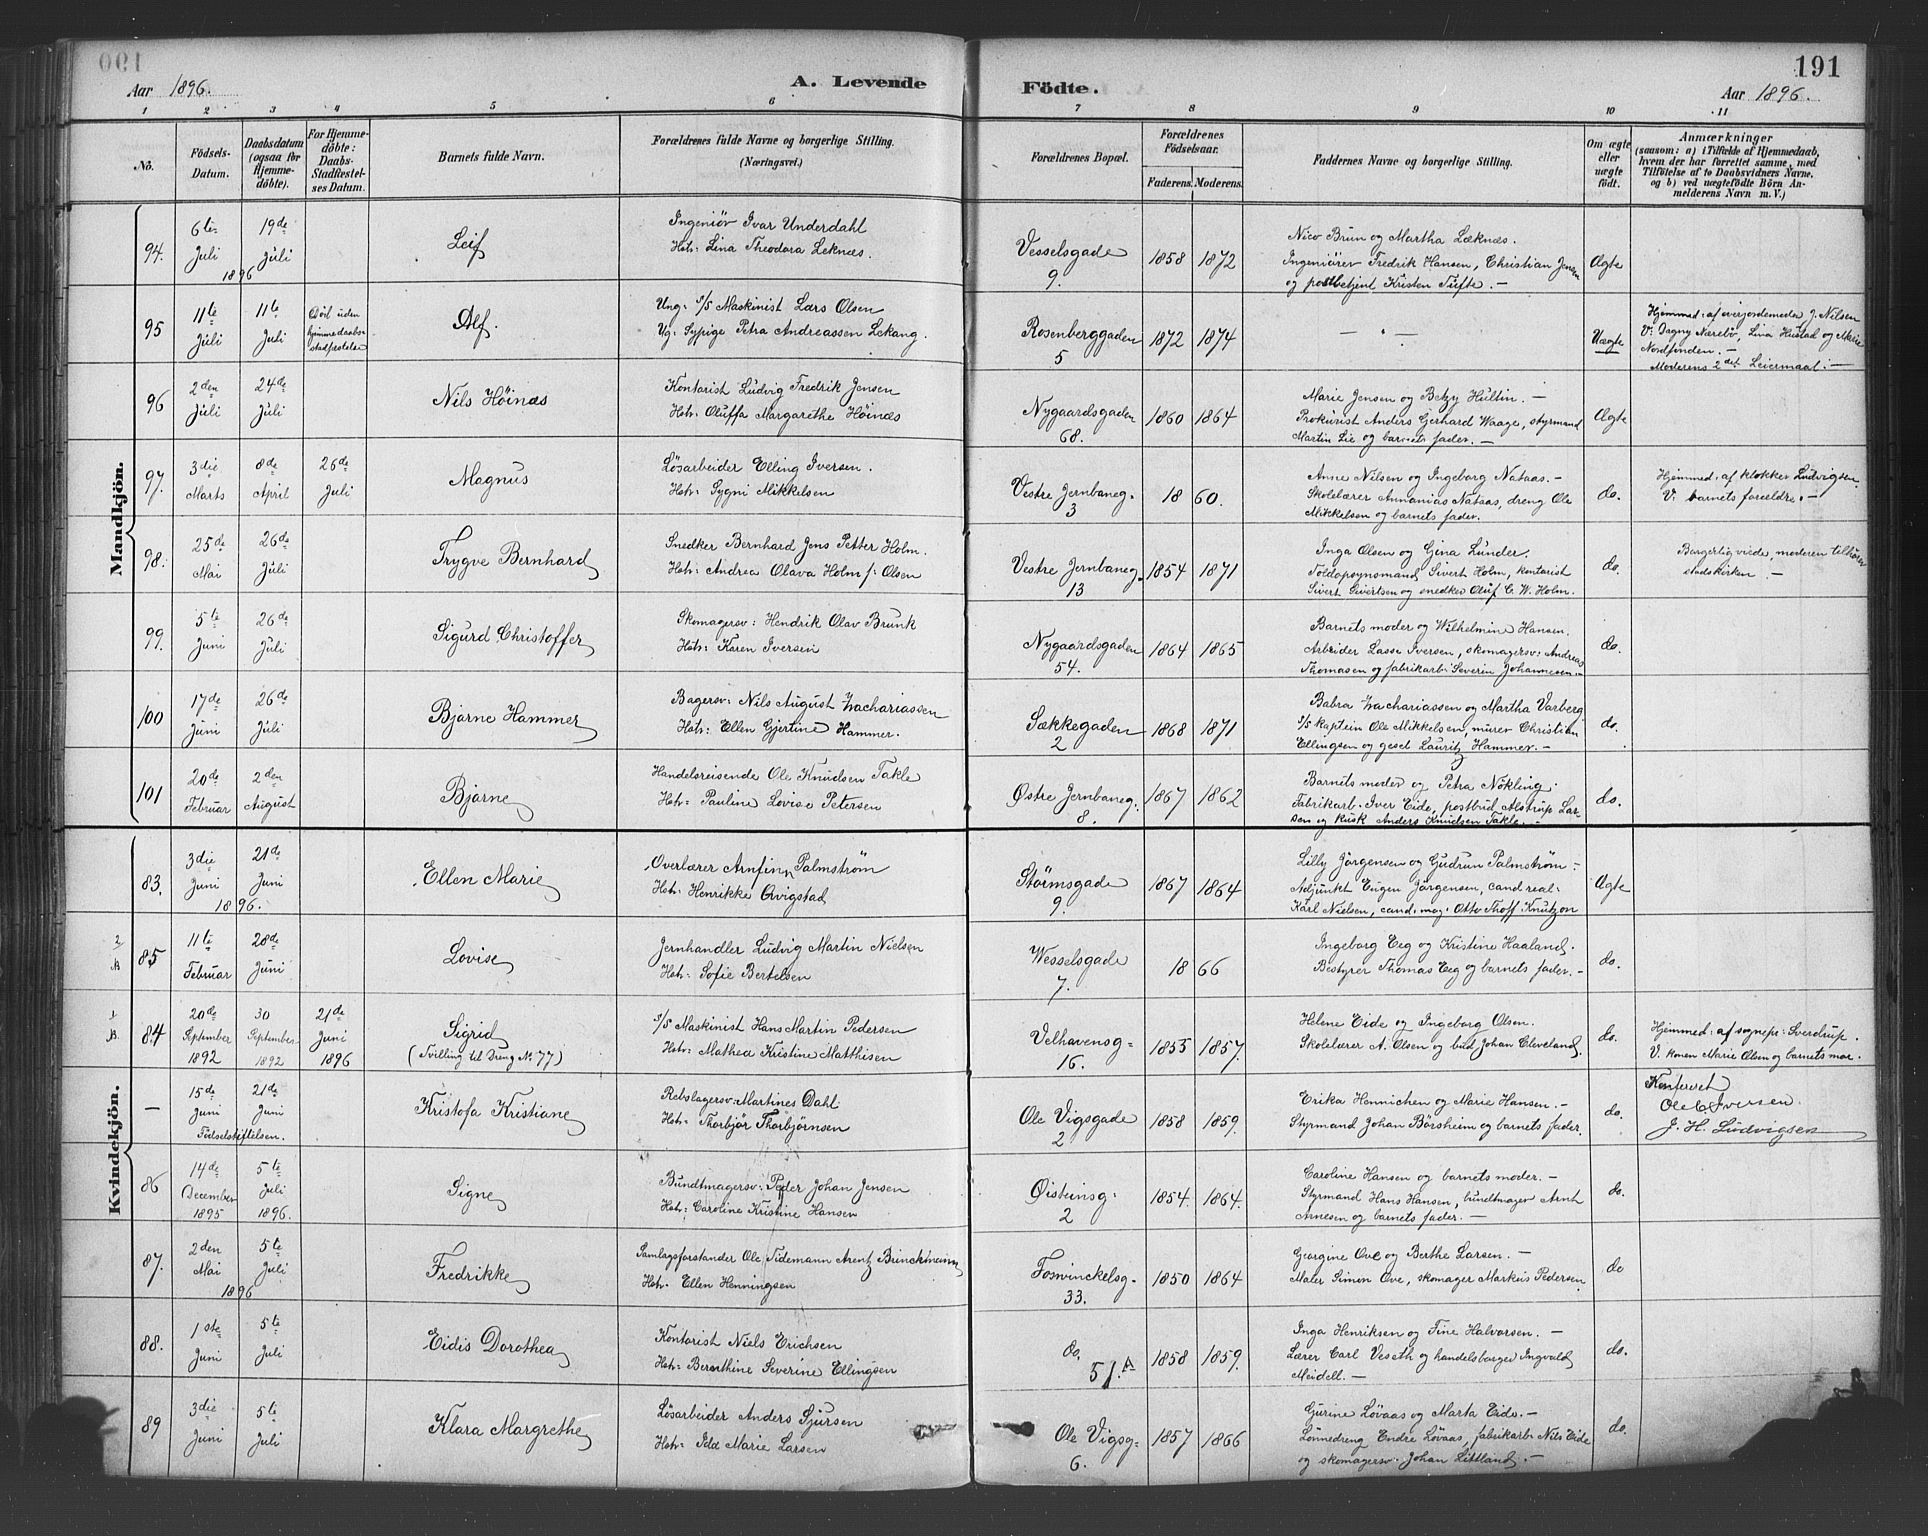 191
Aar 1896.
A. Levende Födte.
Aar 1896.
1 2 3 4 5 6 7 8 9 10 11
No.
Födsels-Datum.
Daabsdatum (ogsaa for Hjemmedöbte).
For Hjemmedöbte: Daabs-Stadfæstelses Datum.
Barnets fulde Navn.
Forældrenes fulde Navne og borgerlige Stilling. (Næringsvei.)
Forældrenes Bopæl.
Forældrenes Födselsaar.
Faderens. Moderens.
Faddernes Navne og borgerlige Stilling.
Om ægte eller uægte födt.
Anmærkninger
(saasom: a) i Tilfælde af Hjemmedaab, hvem der har forrettet samme, med Tilföielse af to Daabsvidners Navne, og b) ved uægtefödte Börn Anmelderens Navn m. V.)
Mandkjön.
94. 6te Juli 1896 19de Juli Leif
Ingeniör Ivar Underdahl
Hstr: Lina Theodora Leknæs.
Vesselsgade 9. 1858 1872
Nico Brun og Martha Læknæs.
Ingeniörer Fredrik Hansen, Christian Jensen
og postbetjent Kristen Tufte. —
Ægte
95 11te Juli 11te Juli Död uden hjemmedaabsstadfæstelse Alf.
Ung: s/s Maskinist Lars Olsen
Ug: Sypige Petra Andreassen Lekang.
Rosenberggaden 5 1872 1874
— " —
Uægte
Hjemmed: af overjordemoder J. Nilsen
V: Dagny Nærebö, Lina Hustad og Marie
Nordfinden. —
Moderens 2det Leiermaal. —
96 2den Juli 24de Juli Nils Höinæs
Kontorist Ludvig Fredrik Jensen
Hstr: Oluffa Margarethe Höinæs
Nygaardsgaden 68. 1860 1864
Marie Jensen og Betzy Hultin. —
Prokurist Anders Gerhard Waage, styrmand
Martin Lie og barnets fader. —
Ægte
97. 3die Marts 8de April 26de Juli Magnus
Lösarbeider Elling Iversen.
Hstr: Sygni Mikkelsen
Vestre Jernbaneg. 3 1860.
Anne Nilsen og Ingeborg Nataas. —
Skolelærer Annanias Nataas, dreng Ole
Mikkelsen og barnets fader.
do.
Hjemmed. af klokker Ludvigsen.
V: barnets forældre. —
98. 25de Mai 26de Juli Trygve Bernhard
Snedker Bernhard Jens Petter Holm.
Hstr: Andrea Olava Holm f: Olsen
Vestre Jernbaneg. 13 1854 1871
Inga Olsen og Gina Lunder.
Toldopsynsmand Sivert Holm, kontorist
Sivert Sivertsen og snedker Oluf C. W. Holm.
do.
Borgerlig viede, moderen tilhører
stadskirken. —
99. 5te Juni 26de Juli Sigurd Christoffer
Skomagersv: Hendrik Olav Brunk
Hstr: Karen Iversen
Nygaardsgaden 54. 1864 1865
Barnets moder og Wilhelmine Hansen.
Arbeider Lasse Iversen, skomagersv: Andreas
Thomasen og fabrikarb: Severin Johannesen. —
do.
100 17de Juni 26de Juli Bjarne Hammer
Bagersv: Nils August Zachariassen
Hstr: Ellen Gjertine Hammer.
Sækkegaden 2 1868 1871
Babra Zachariassen og Martha Varberg
s/s kaptein Ole Mikkelsen, murer Christian
Ellingsen og gesel Lauritz Hammer. —
do.
101 20de Februar 2den August Bjarne
Handelsreisende Ole Knudsen Takle
Hstr: Pauline Lovise Petersen
Østre Jernbaneg. 8. 1867 1862
Barnets moder og Petra Nökling.
Fabrikarb: Iver Eide, postbud Alstrup Lar-
sen og kusk Anders Knudsen Takle. —
do.
Kvindekjön.
83. 3die Juni 1896. 21de Juni Ellen Marie
Overlærer Arnfinn Palmström
Hstr: Henrikke Qvigstad
Störmsgade 9. 1867 1864
Lilly Jörgensen og Gudrun Palmström —
Adjunkt Eugen Jörgensen, cand real:
Karl Nielsen, cand. mag: Otto Thott Knutzon
Ægte
85 11te Februar 28de Juni Lovise
Jernhandler Ludvig Martin Nielsen
Hstr: Sofie Bertelsen
Wesselsgade 7. 1866
Ingeborg Eeg og Kristine Haaland.
Bestyrer Thomas Eeg og barnets fader. —
do.
84 20de September 1892 30 September 1892 21de Juni 1896 Sigrid
(Tvilling til Dreng No 77)
s/s Maskinist Hans Martin Pedersen
Hstr: Mathea Kristine Matthisen
Velhavensg. 16. 1855 1857.
Helene Eide og Ingeborg Olsen.
Skolelærer A. Olsen og bud Johan Cleveland.
do.
Hjemmed: af sognepr: Sverdrup.
V. konen Marie Olsen og barnets mor.
— 15de Juni 21de Juni Födselstiftelsen. Kristofa Kristiane
Rebslagersv: Martines Dahl
Hstr: Thorbjör Thorbjörnsen
Ole Vigsgade 2 1858 1859.
Erika Hennichen og Marie Hansen. —
Styrmand Johan Börsheim og barnets fader.
do.
Konfereret
Ole C Iversen.
J. H. Ludvigsen
86 14de December 1895 5te Juli 1896. Signe
Bundtmagersv: Peder Johan Jensen
Hstr: Caroline Kristine Hansen
Øisteinsg: 2 1854. 1864.
Caroline Hansen og barnets moder. —
Styrmand Hans Hansen, bundtmager Arnt
Arnesen og barnets fader. —
do.
87. 2den Mai 1896 5te Juli Fredrikke
Samlagsforstander Ole Tidemann Arentz Brinckmann
Hstr: Ellen Henningsen
Fosvinckelsg. 33. 1850 1864
Georgine Ove og Berthe Larsen. —
Maler Simon Ove, skomager Markus Pedersen.
do
88. 1ste Juni 5te Juli Eidis Dorothea
Kontorist Niels Erichsen
Hstr: Berathine Severine Ellingsen
do. 51.A 1858 1859.
Inga Henriksen og Tine Halvorsen. —
Lærer Carl Veseth og handelsborger Ingvald
Meidell. —
do.
89 3die Juni 5te Juli Klara Margrethe
Lösarbeider Anders Sjursen
Hstr: Ida Marie Larsen
Ole Vigsg. 6. 1857 1866
Gurine Lövaas og Marta Eide. —
Lönnedreng Endre Lövaas, fabrikarb: Nils Eide
og skomagersv. Johan Littland. —
do.